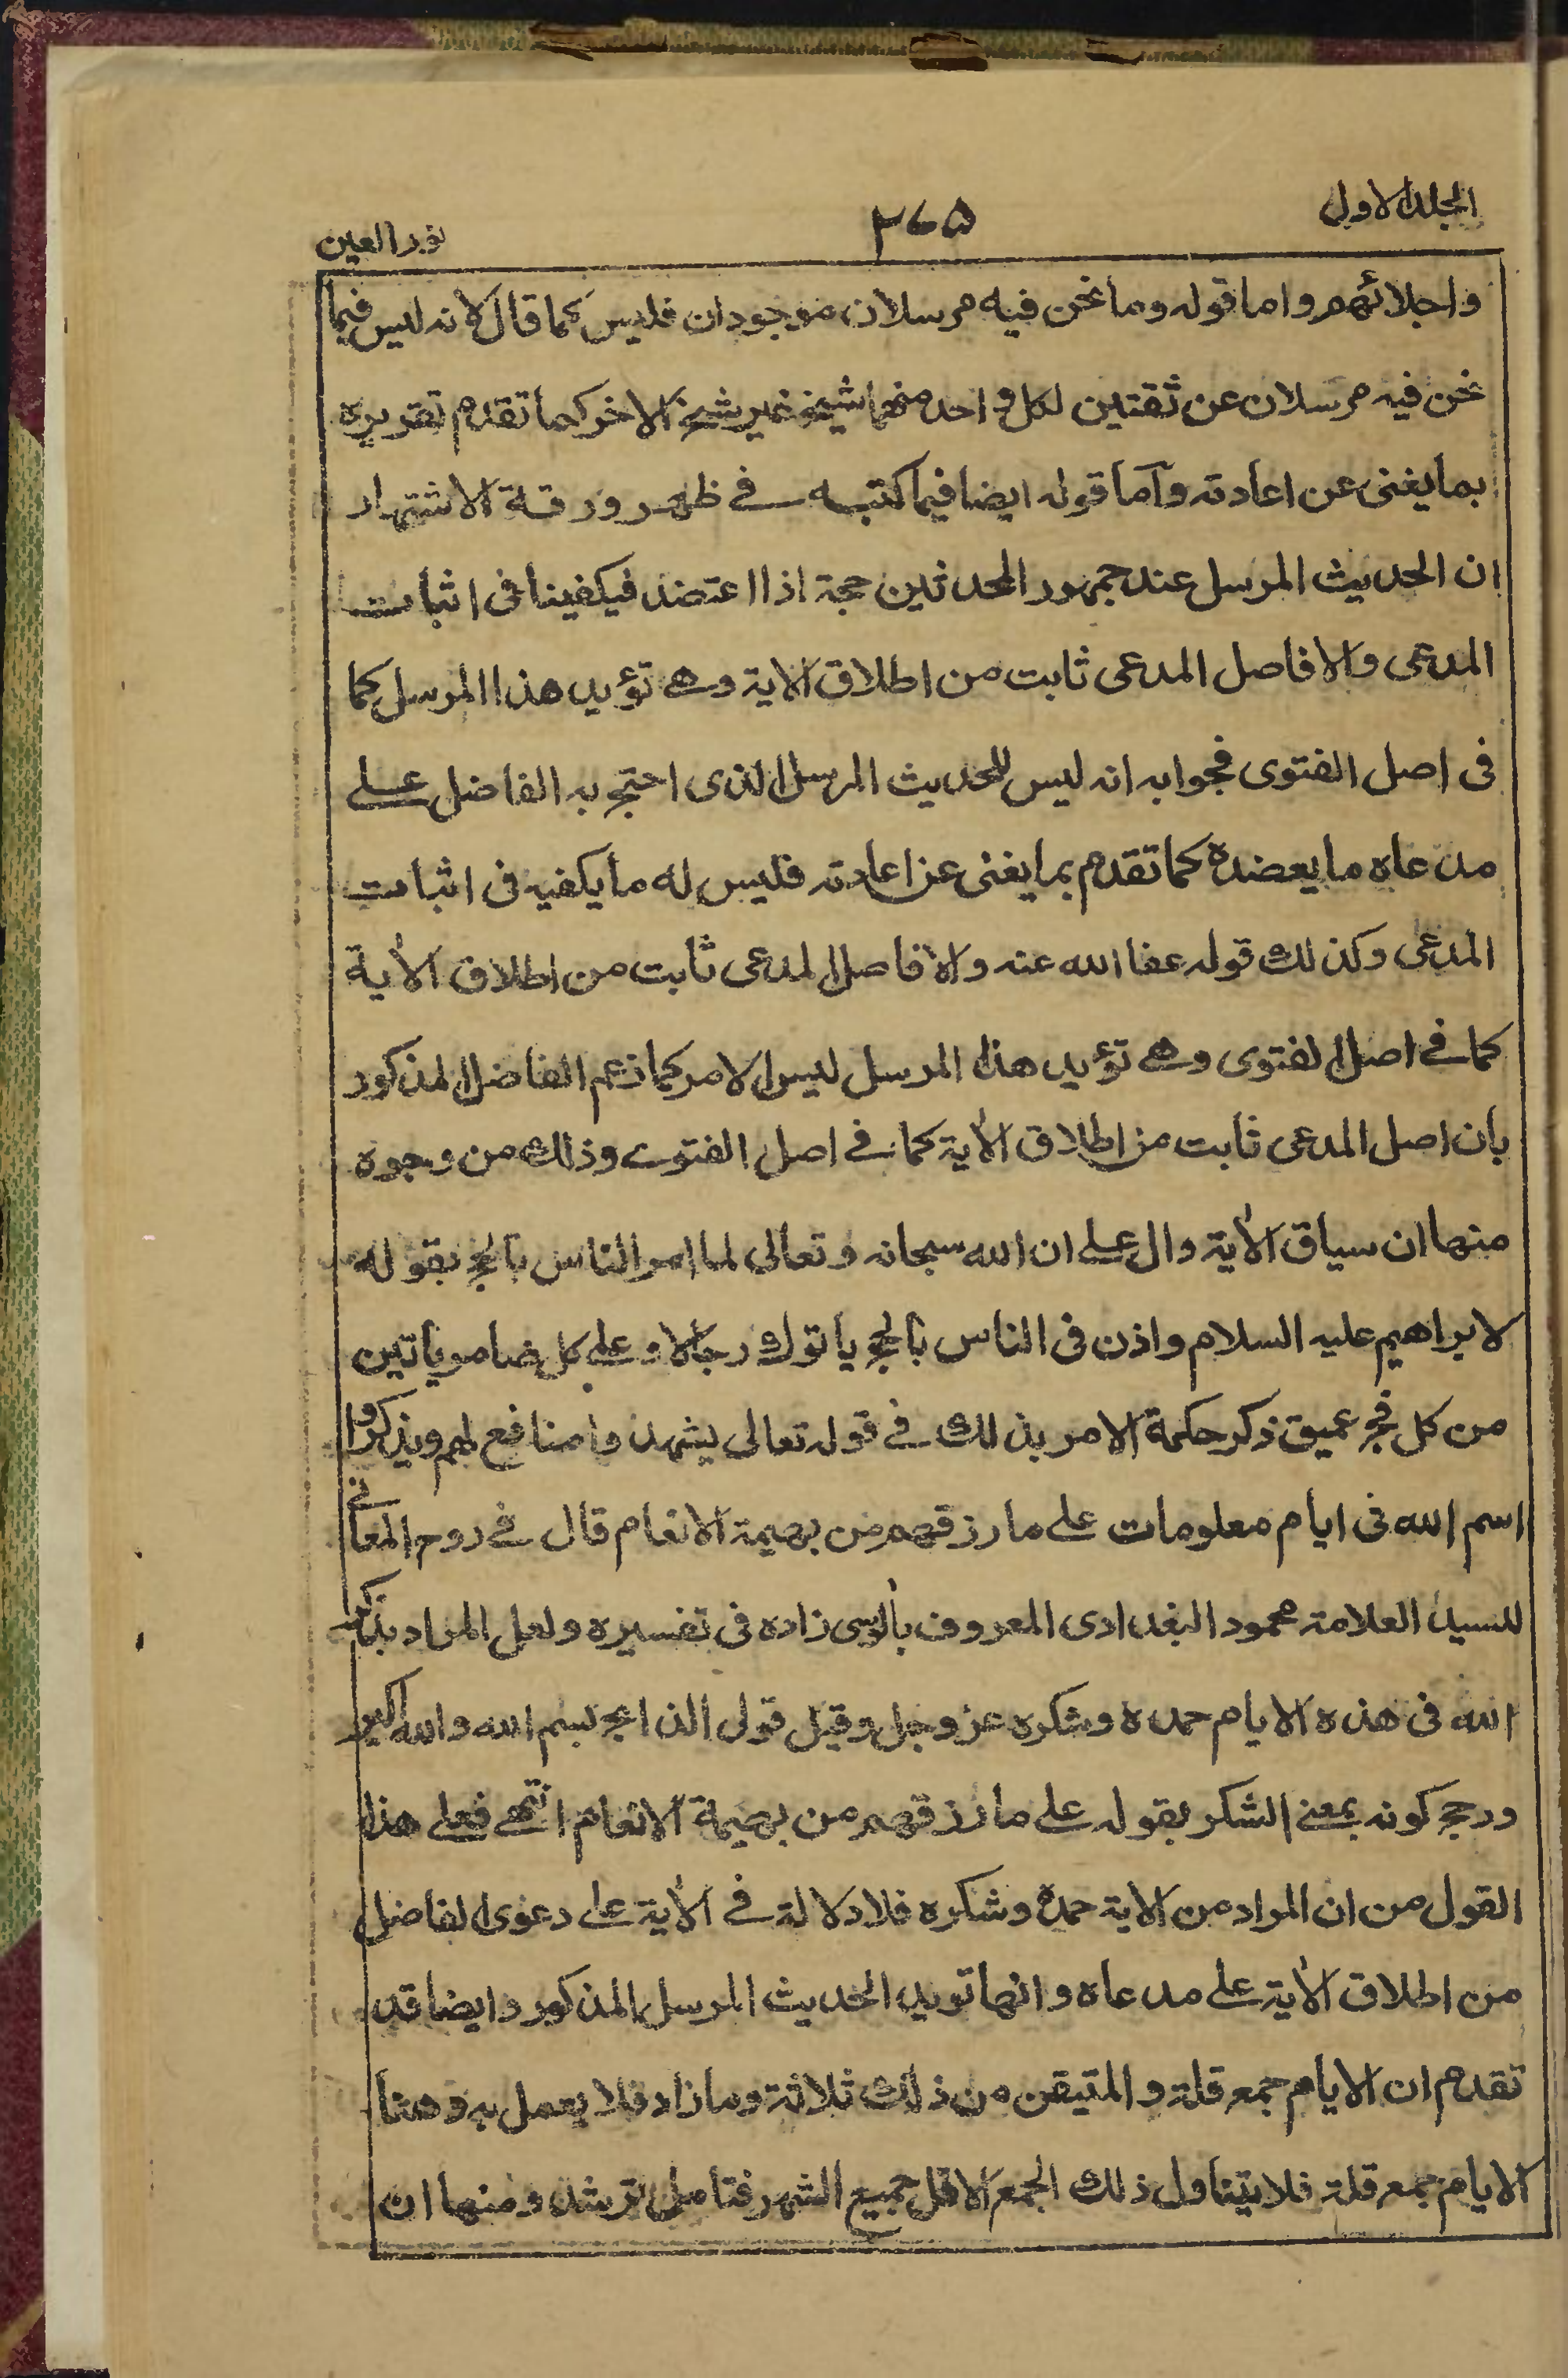 الجلد الاول
٢٦٥
نور العين
واجلائهم واما قوله وما نحن فيه مرسلان موجودان فليس كما قال لانه ليس فيما
نحن فيه مرسلان عن ثقتين لكل واحد منهما شيخ غير شيخ الاخر كما تقدم تقريره
بما يغنى عن اعادته وآما قوله ايضا فيما كتبه فے ظهر ورقة الاشتهار
ان الحديث المرسل عند جمهور المحدثين حجة اذا اعتضد فيكفينا فى اثبات
المدعى والا فاصل المدعى ثابت من اطلاق الاية وهے تؤيد هذا المرسل كما
فى اصل الفتوى فجوابه انه ليس للحديث المرسل الذى احتج به الفاضل علے
مدعاه ما يعضده كما تقدم بما يغنى عن اعادته فليس له ما يكفيه فى اثبات
المدعى وكذلك قوله عفا الله عنه والا فاصل المدعى ثابت من اطلاق الاٰية
كما فے اصل الفتوى وهے تؤيد هذا المرسل ليس الامر كما زعم الفاضل المذكور
بان اصل المدعى ثابت من اطلاق الاٰية كما فے اصل الفتوے وذلك من وجوه
منها ان سياق الاٰية دال علے ان الله سبحانه وتعالى لما امر الناس بالحج بقوله
لابراهيم عليه السلام واذن فى الناس بالحج ياتوك رجالا وعلى كل ضامر ياتين
من كل فج عميق ذكر حكمة الامر بذلك فے قوله تعالى يشهدوا منافع لهم ويذكروا
اسم الله فى ايام معلومات على ما رزقهم من بهيمة الانعام قال فے روح المعانے
للسيد العلامة محمود البغدادى المعروف بالوسى زاده فى تفسيره ولعل المراد بذكر
الله فى هذه الايام حمده وشكره عز وجل وقيل قول الذابح بسم الله والله اكبر
ورجح كونه بمعنے الشكر بقوله على ما رزقهم من بهيمة الانعام انتهے فعلے هذا
القول من ان المراد من الاية حمده وشكره فلا دلالة فے الاٰية على دعوى الفاضل
من اطلاق الاٰية على مدعاه وانها تويد الحديث المرسل المذكور وايضا قد
تقدم ان الايام جمع قلة والمتيقن من ذلك ثلاثة وما زاد فلا يعمل به وهنا
الايام جمع قلة فلا يتناول ذلك الجمع الاقل جميع الشهر فتامل ترشد ومنها ان